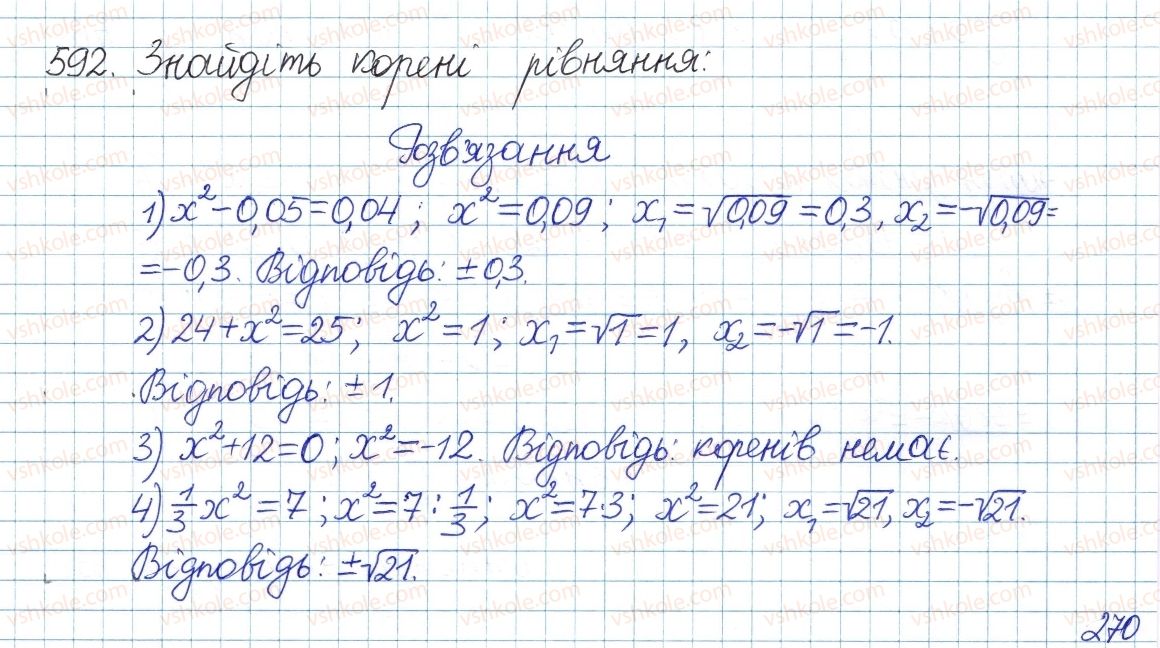 592. Знайдіть корені рівняння:
Розв'язання
1) x² - 0,05 = 0,04; x² = 0,09; x₁ = √0,09 = 0,3, x₂ = -√0,09 =
= -0,3. Відповідь: ± 0,3.
2) 24 + x² = 25; x² = 1; x₁ = √1 = 1, x₂ = -√1 = -1.
Відповідь: ± 1.
3) x² + 12 = 0; x² = -12. Відповідь: коренів немає.
4) 1/3 x² = 7; x² = 7 : 1/3; x² = 7·3; x² = 21; x₁ = √21, x₂ = -√21.
Відповідь: ± √21.
270
vshkole.com